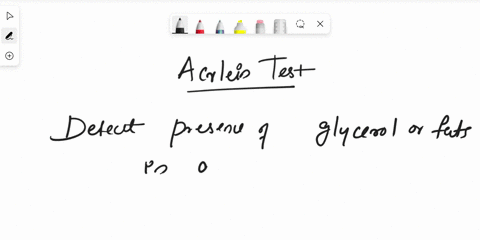 Acrlein Test
Detect presence of glycerol or fats
in o